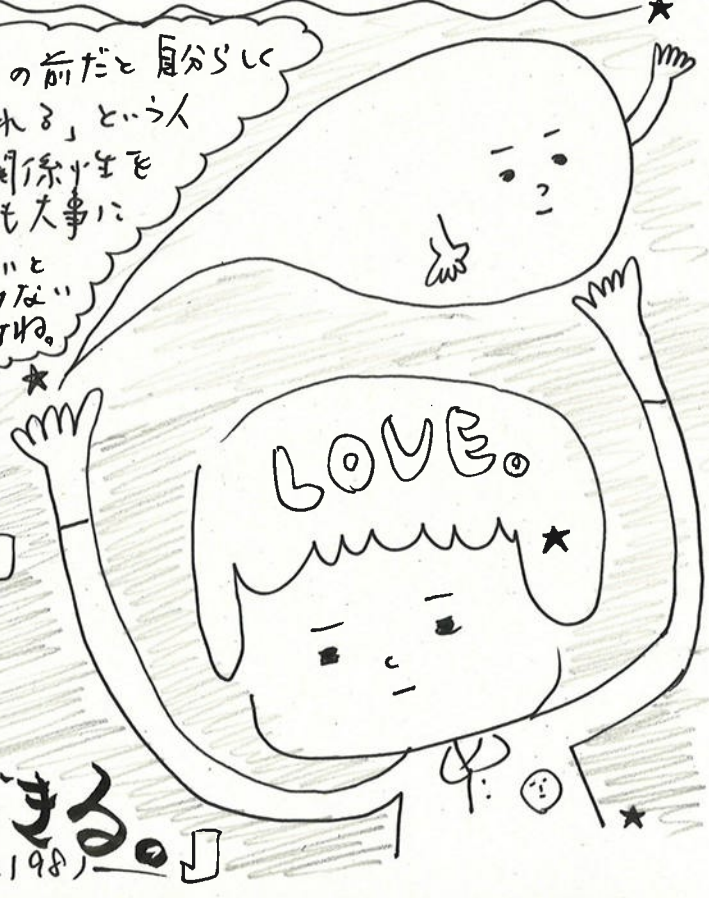 の前だと 自分らしく
れる」という人
関係性を
も大事に
いと
ない
ね。
LOVE。
きる。』
1981